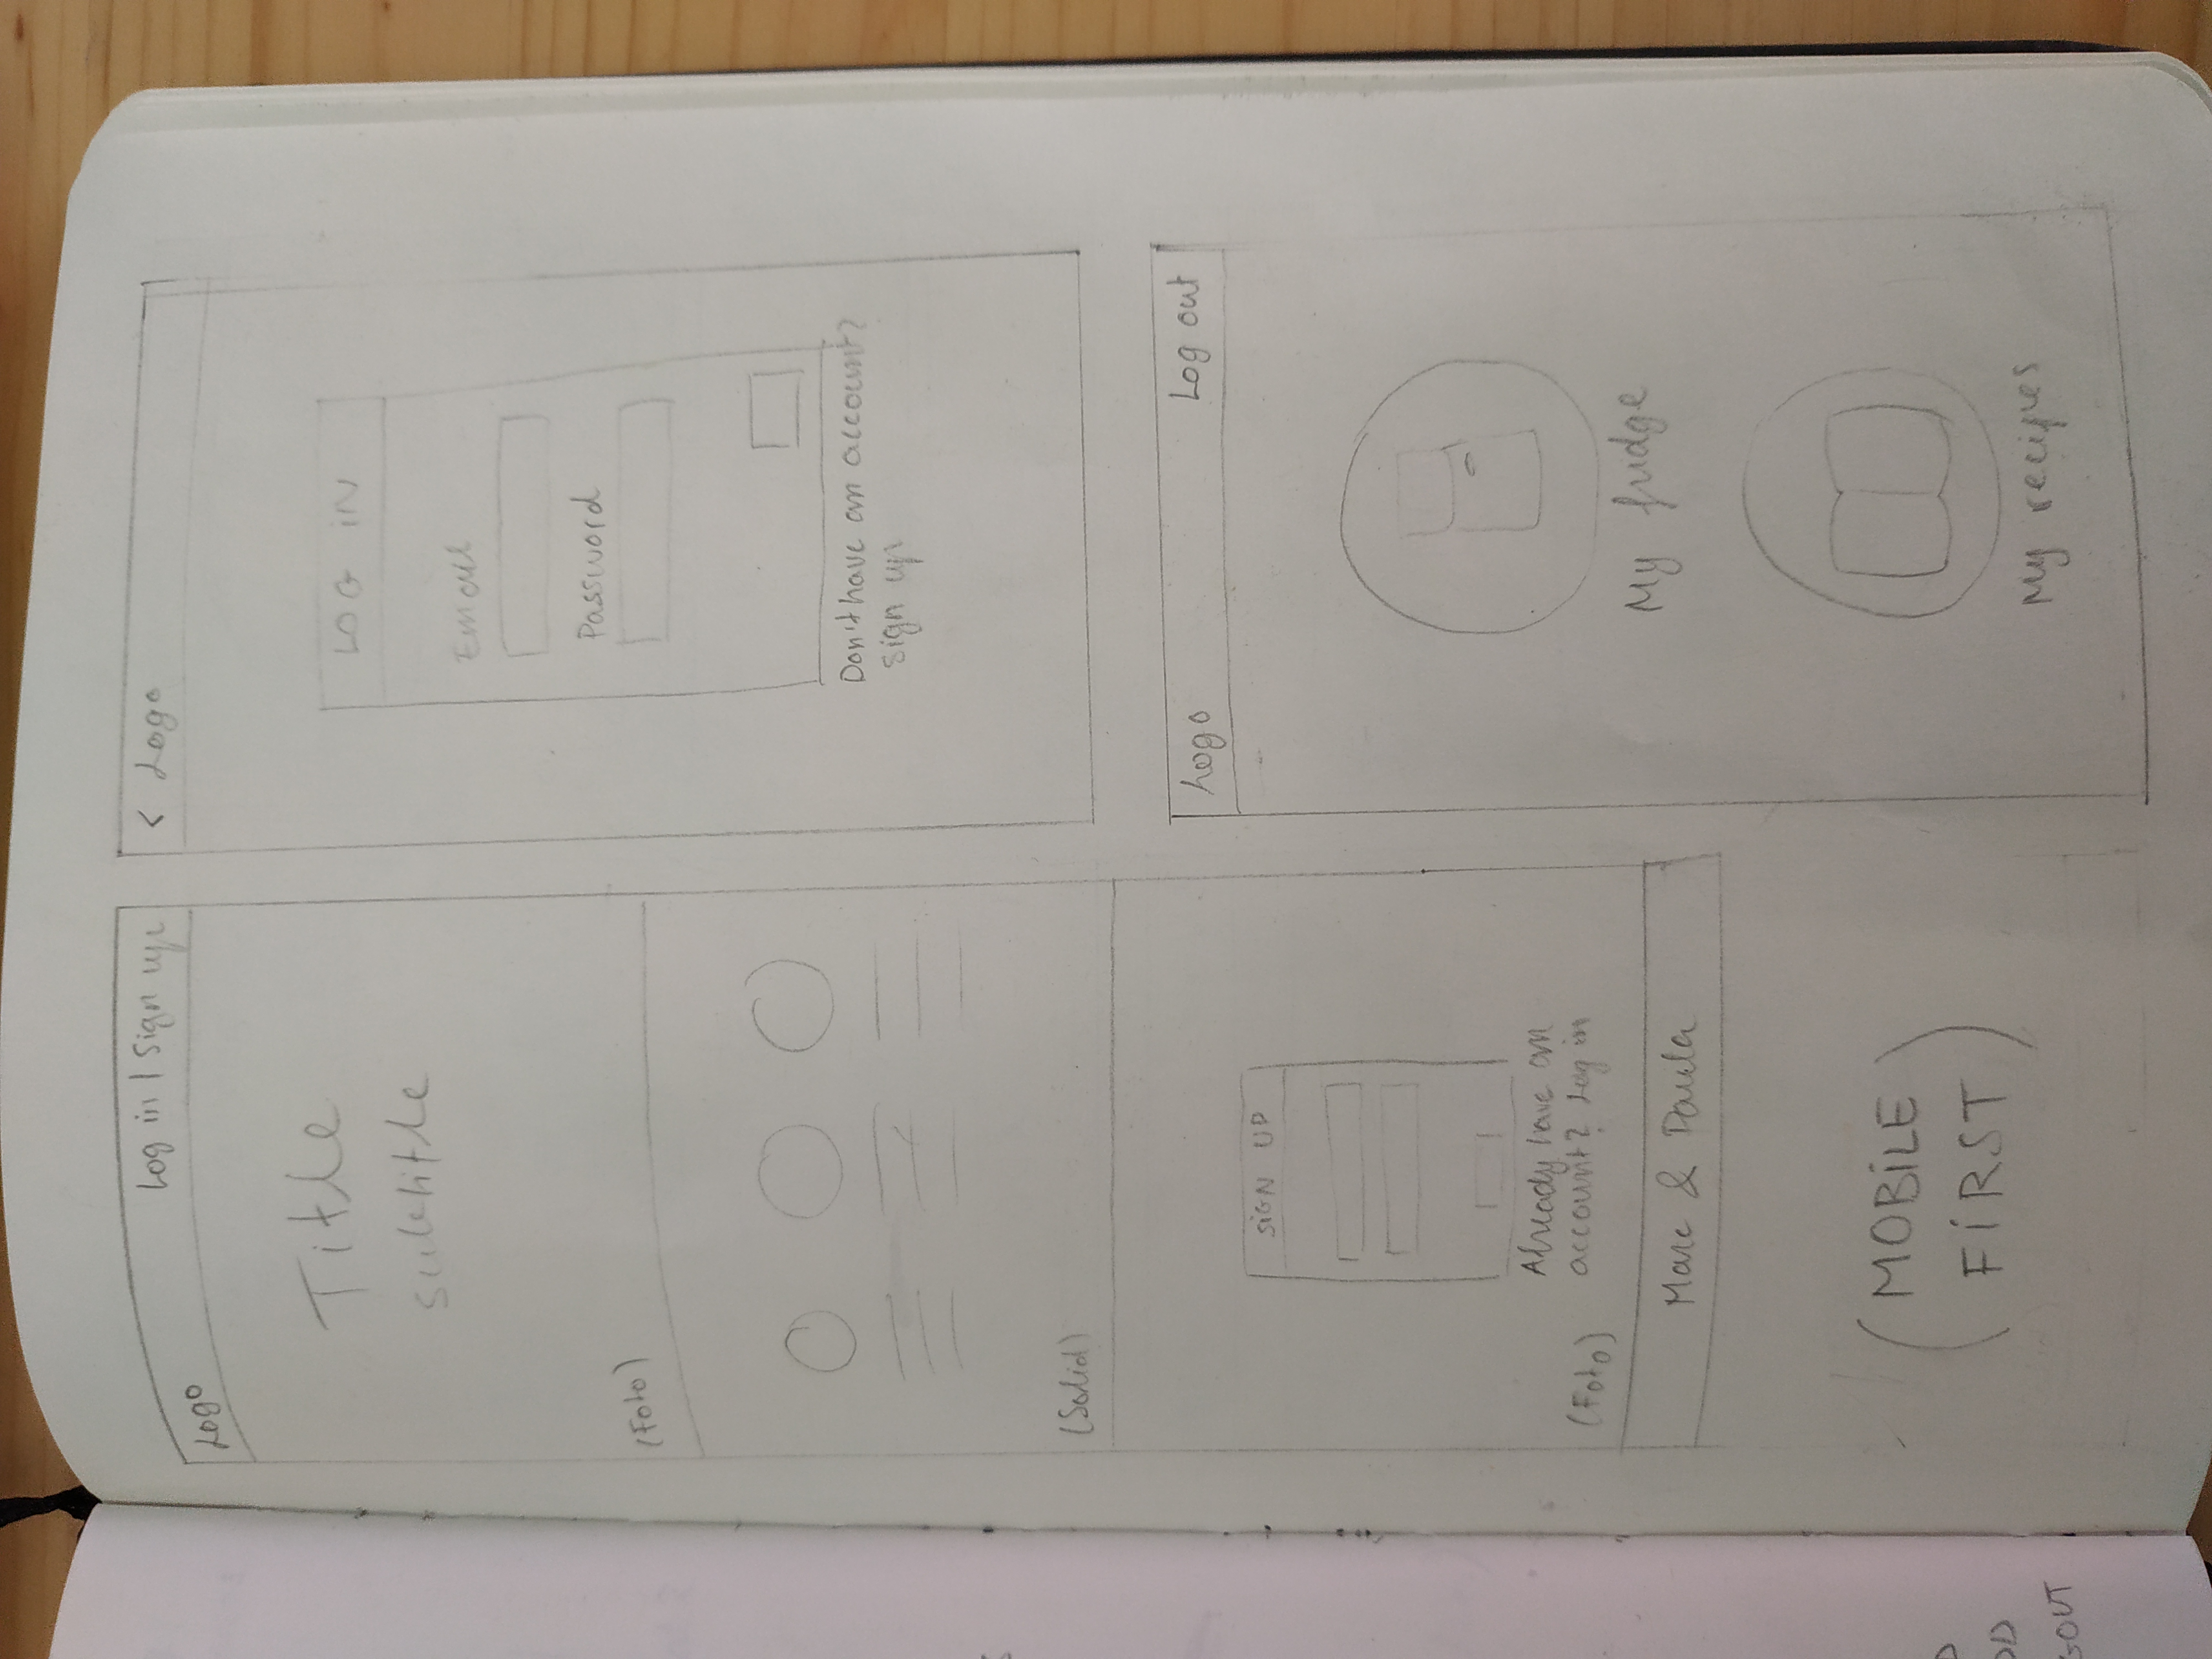 Log in | Sign up
Logo
Title
subtitle
(Foto)
(Solid)
SiGN UP
Already have an
account? Log in
(Foto)
Marc & Paula
(MOBiLE
FiRST)
< Logo
LOG iN
Email
Password
Don't have an account?
Sign up
Logo
Log out
My fridge
My recipes
GOUT